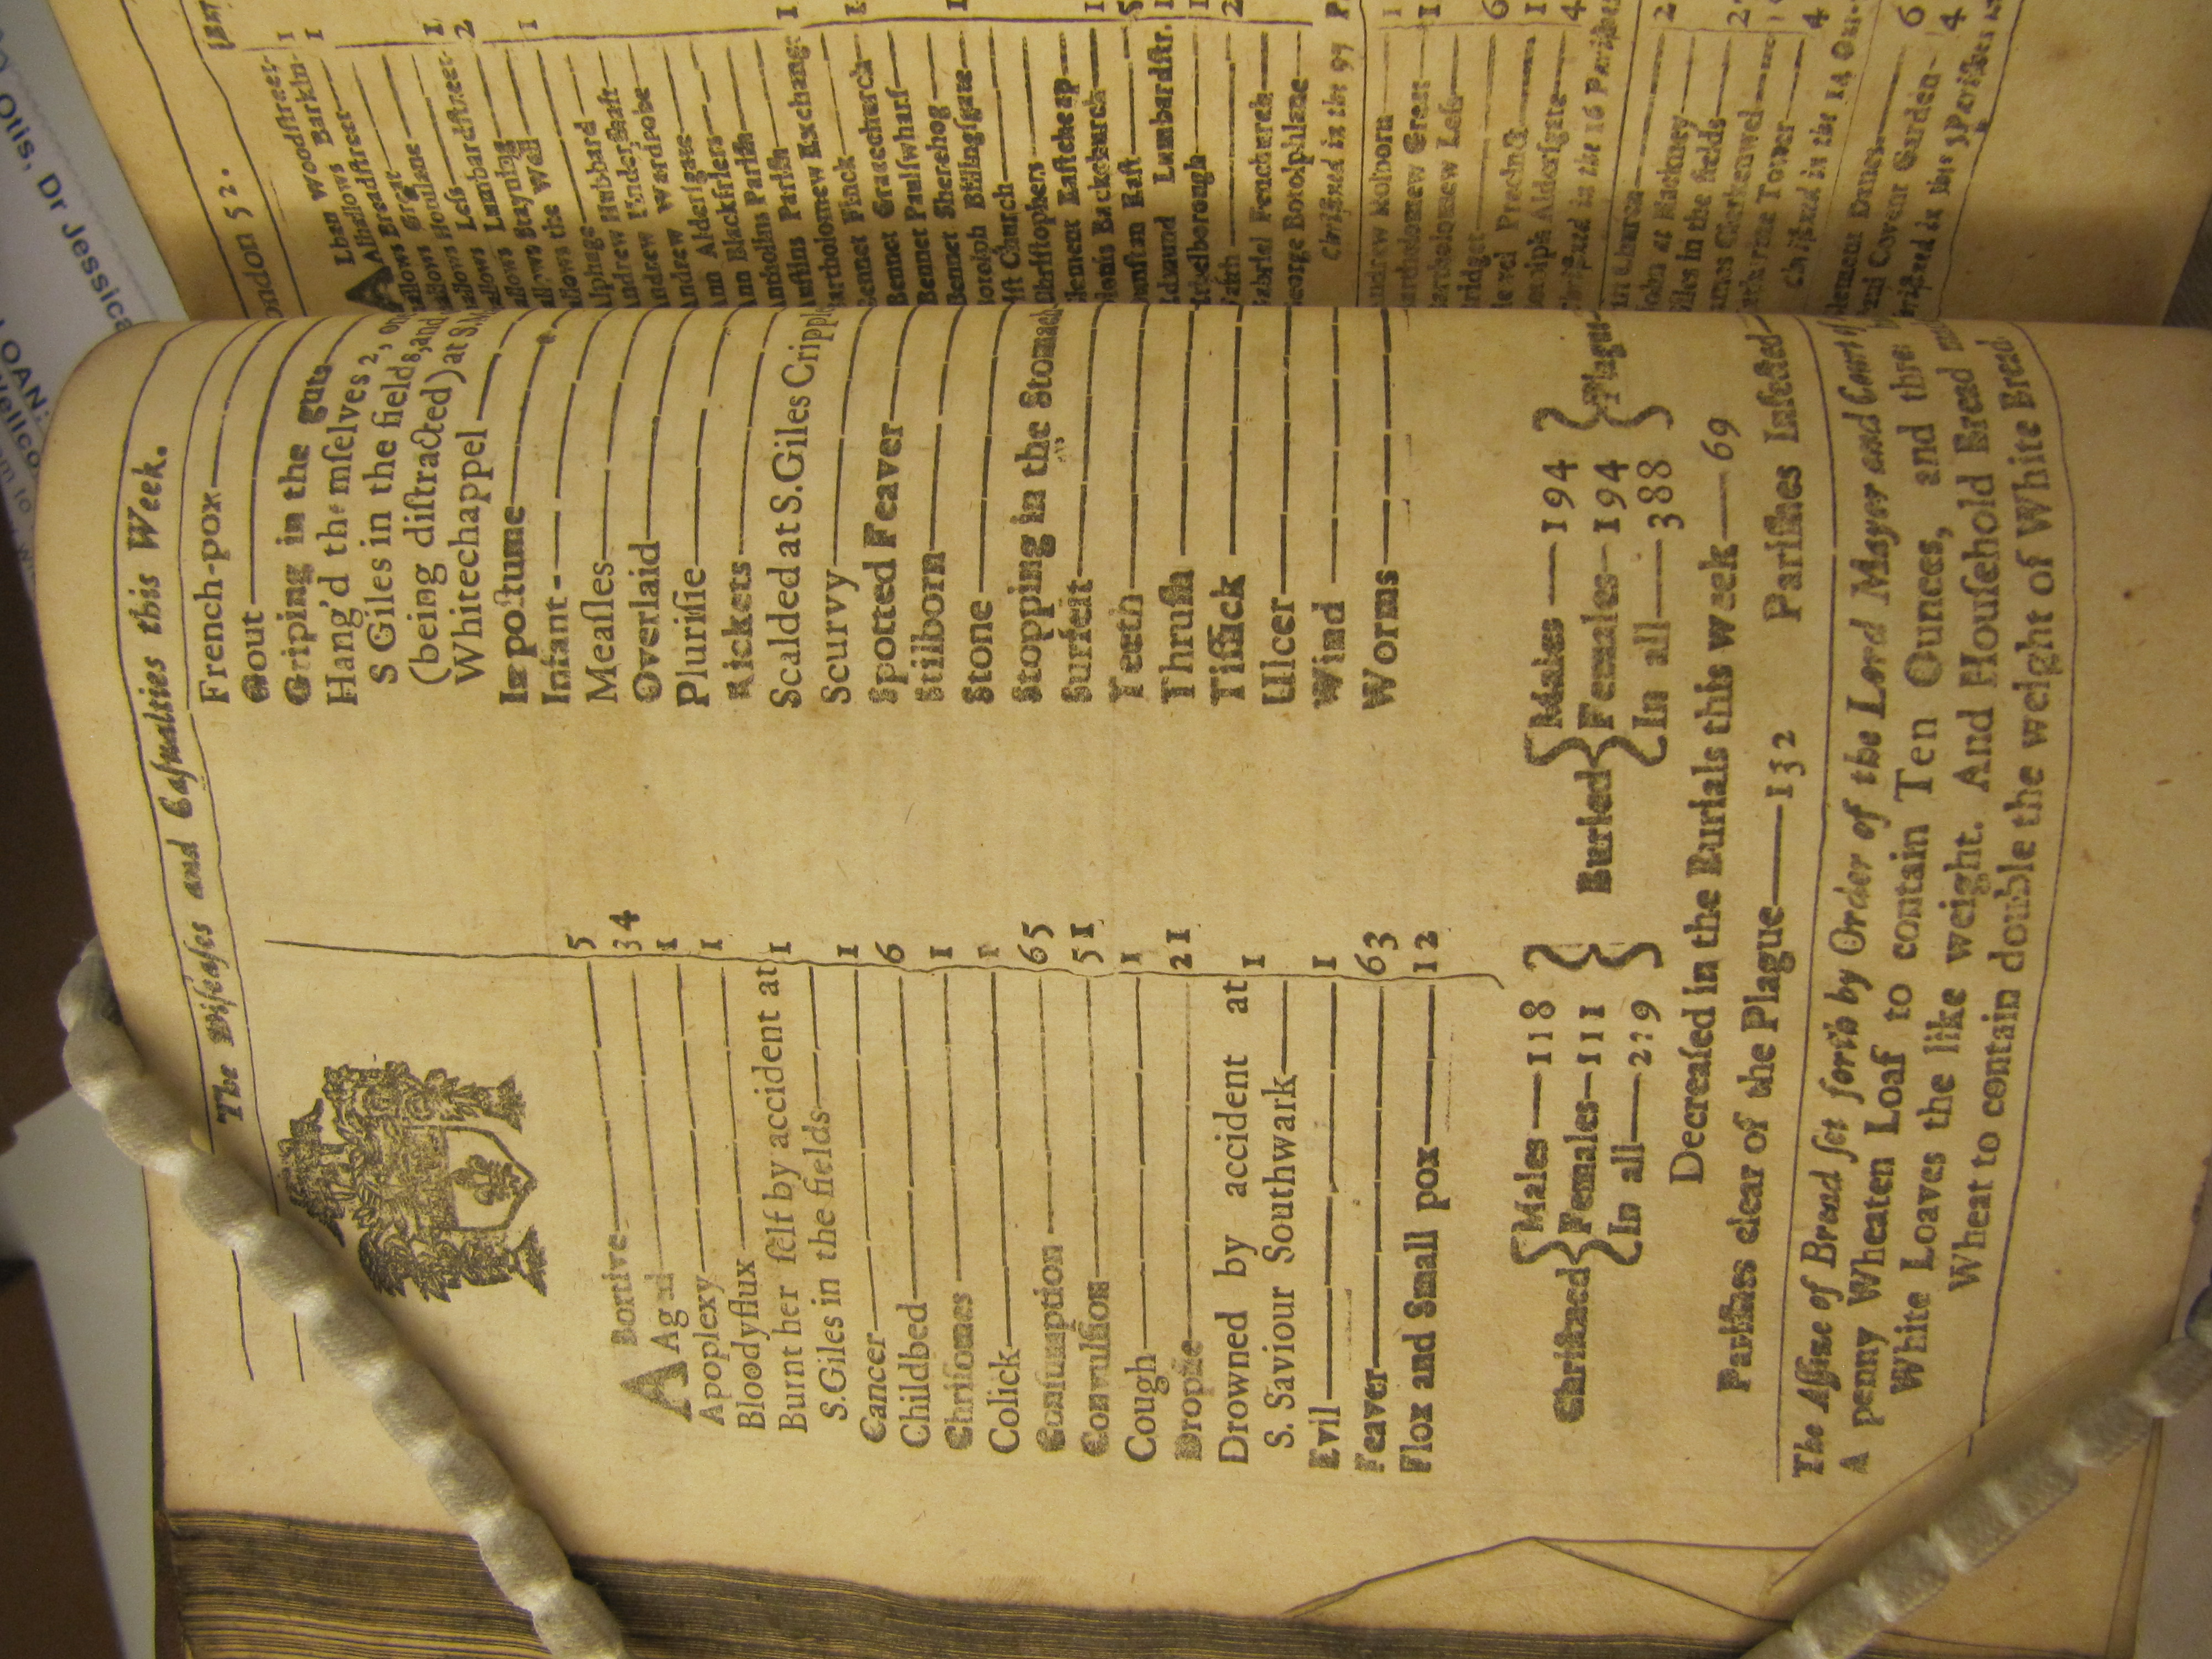 The Diseases and Casualties this Week.
ABortive 5
Aged 34
Apoplexy 1
Bloodyflux 1
Burnt her self by accident at
S. Giles in the fields 1
Cancer 1
Childbed 6
Chrisomes 1
Colick 1
Consumption 65
Convulsion 51
Cough 1
Dropsie 21
Drowned by accident at
S. Saviour Southwark 1
Evil 1
Feaver 63
Flox and Small pox 12
French-pox
Gout
Griping in the guts
Hang'd themselves 2,
S Giles in the fields, and
(being distracted) at S.
Whitechappel
Impostume
Infant
Measles
Overlaid
Plurisie
Rickets
Scalded at S. Giles Cripple
Scurvy
Spotted Feaver
Stilborn
Stone
Stopping in the Stomach
Surfeit
Teeth
Thrush
Tissick
Ulcer
Wind
Worms
Christned { Males 118
Females 111
In all 229 }
Buried { Males 194
Females 194
In all 388 } Plague
Decreased in the Burials this week 69
Parishes clear of the Plague 132 Parishes Infected
The Assize of Bread set forth by Order of the Lord Mayer and Court of
A penny Wheaten Loaf to contain Ten Ounces, and three
White Loaves the like weight. And Houshold Bread
Wheat to contain double the weight of White Bread
ondon 52.
ALban Woodstreet 1
Alhallows Barkin 1
Alhallows Breadstreet
allows Great
allows Honilane 1
allows Less 2
allows Lumbardstreet
allows Stayning 1
allows the Wall
Alphage
Andrew Hubbard
Andrew Undershaft
Andrew Wardrobe
Ann Aldersgate
Ann Blackfriers
Antholins Parish
Austins Parish 1
artholomew Exchange
Bennet Finck 1
Bennet Gracechurch
Bennet Paulswharf
Bennet Sherehog 1
otolph Billingsgate
ist Church
Christophers
lement Eastcheap 1
ionis Backchurch 5
unstan East 1
Edmund Lumbardstr. 1
thelborough 2
aith
abriel Fenchurch
eorge Botolphlane
Christned in the 97 P
Andrew Holborn 1
artholomew Great 1
artholomew Less
ridget 6
evel Precinct 1
otolph Aldersgate 4
Christned in the 16 Parishes
ist Church 2
ohn at Hackney
iles in the fields 2
ames Clerkenwel
atharine Tower 4
Christned in the 14 Out-
lement Danes 6
aul Covent Garden 4
Christned in the 5 Parishes in
Otis, Dr Jessica
LOAN: